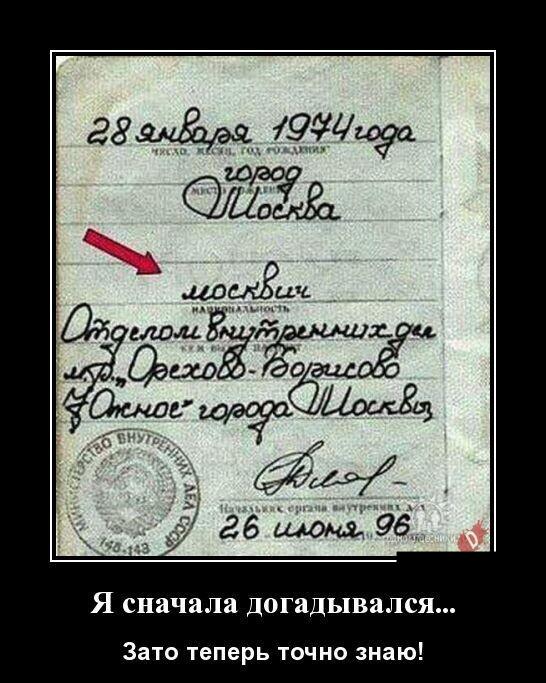 28 января 1974 года
ЧИСЛО, МЕСЯЦ, ГОД РОЖДЕНИЯ
город
МЕСТО РОЖДЕНИЯ
Москва
москвич
НАЦИОНАЛЬНОСТЬ
Отделом внутренних дел
КЕМ ВЫДАН ПАСПОРТ
м/р „Орехово-Борисово
Южное" города Москвы
МИНИСТЕРСТВО ВНУТРЕННИХ ДЕЛ СССР
148-143
Начальник органа внутренних дел
26 июня 96
19
одноклассники
D
Я сначала догадывался...
Зато теперь точно знаю!